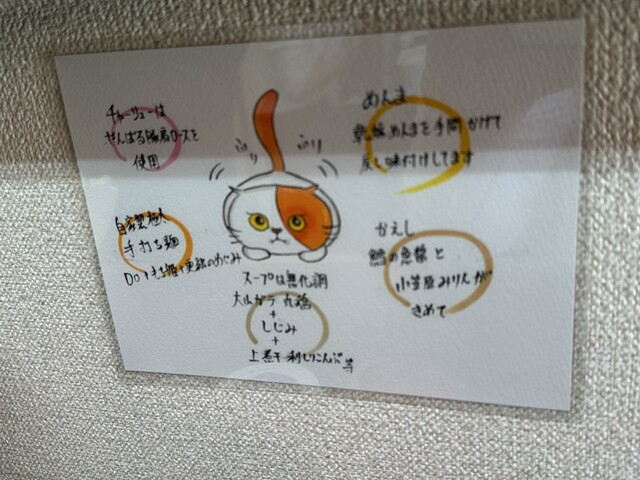 チャーシューは
やんばる豚肩ロースを
使用
めんま
乾燥めんまを手間かけて
戻し味付けしてます
ふり
ふり
自家製極人
手打ち麺
かえし
と
小笠原みりんが
きめて
スープは無化調
大山ガラ 丸鶏
+
しじみ
+
上煮干 利しりこんぶ 等